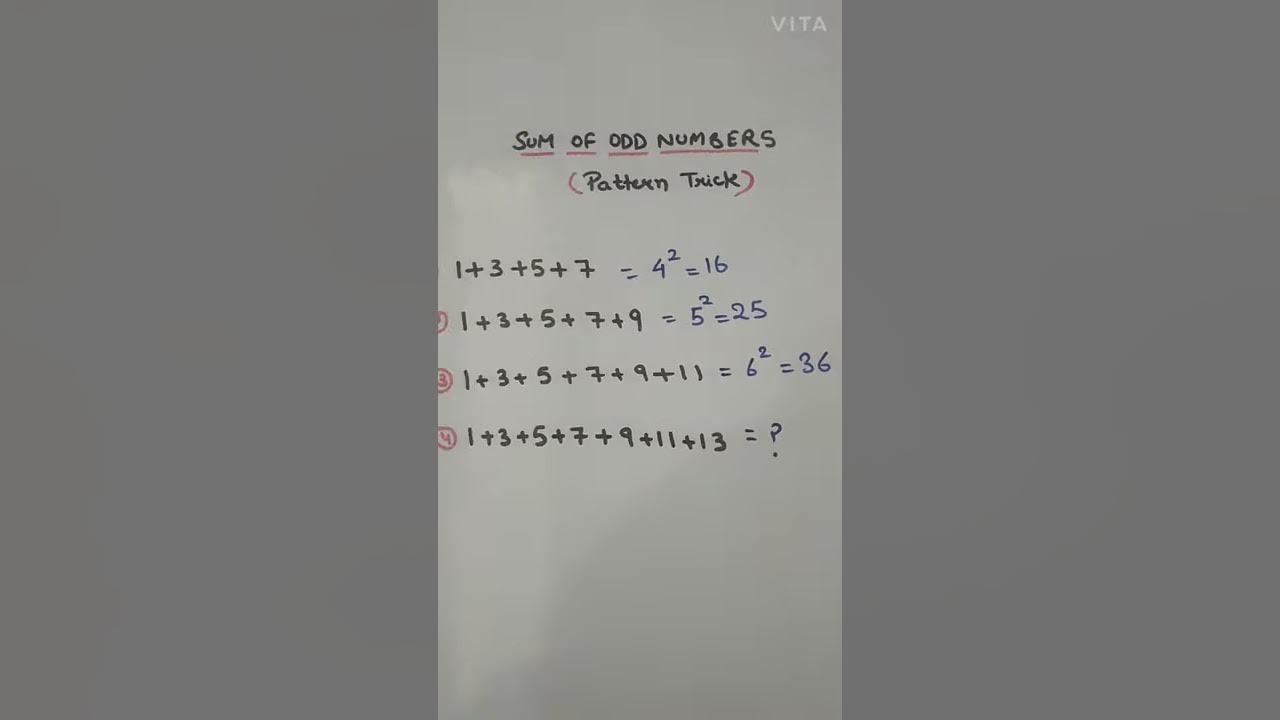 VITA
SUM OF ODD NUMBERS
(Pattern Trick)
1+3+5+7 = 4² = 16
1+3+5+7+9 = 5² = 25
③ 1+3+5+7+9+11 = 6² = 36
④ 1+3+5+7+9+11+13 = ?